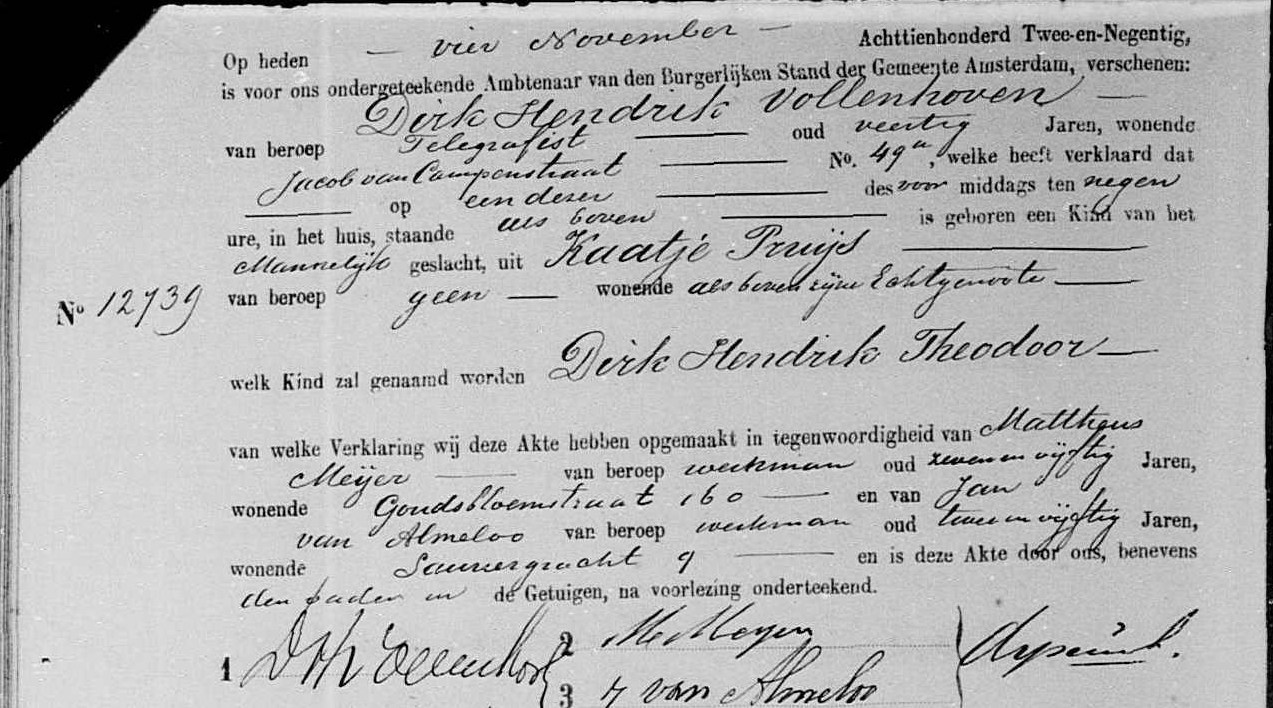 Op heden — vier November — Achttienhonderd Twee-en-Negentig,
is voor ons ondergeteekende Ambtenaar van den Burgerlijken Stand der Gemeente Amsterdam, verschenen:
Dirk Hendrik Vollenhoven —
van beroep Telegrafist — oud veertig Jaren, wonende
Jacob van Campenstraat — No. 49a, welke heeft verklaard dat
— op een dezer — des voor middags ten negen
ure, in het huis, staande als boven — is geboren een Kind van het
Mannelijk geslacht, uit Kaatje Pruijs —
No 12739 van beroep geen — wonende als boven zijne Echtgenoote —
welk Kind zal genaamd worden Dirk Hendrik Theodoor —
van welke Verklaring wij deze Akte hebben opgemaakt in tegenwoordigheid van Mattheus
Meijer — van beroep werkman oud zeven en vijftig Jaren,
wonende Goudsbloemstraat 160 — en van Jan
van Almeloo van beroep werkman oud twee en vijftig Jaren,
wonende Lauriergracht 9 — en is deze Akte door ons, benevens
den vader en de Getuigen, na voorlezing onderteekend.
1 DHVollenhoven 2 M Meyer
3 J van Almeloo